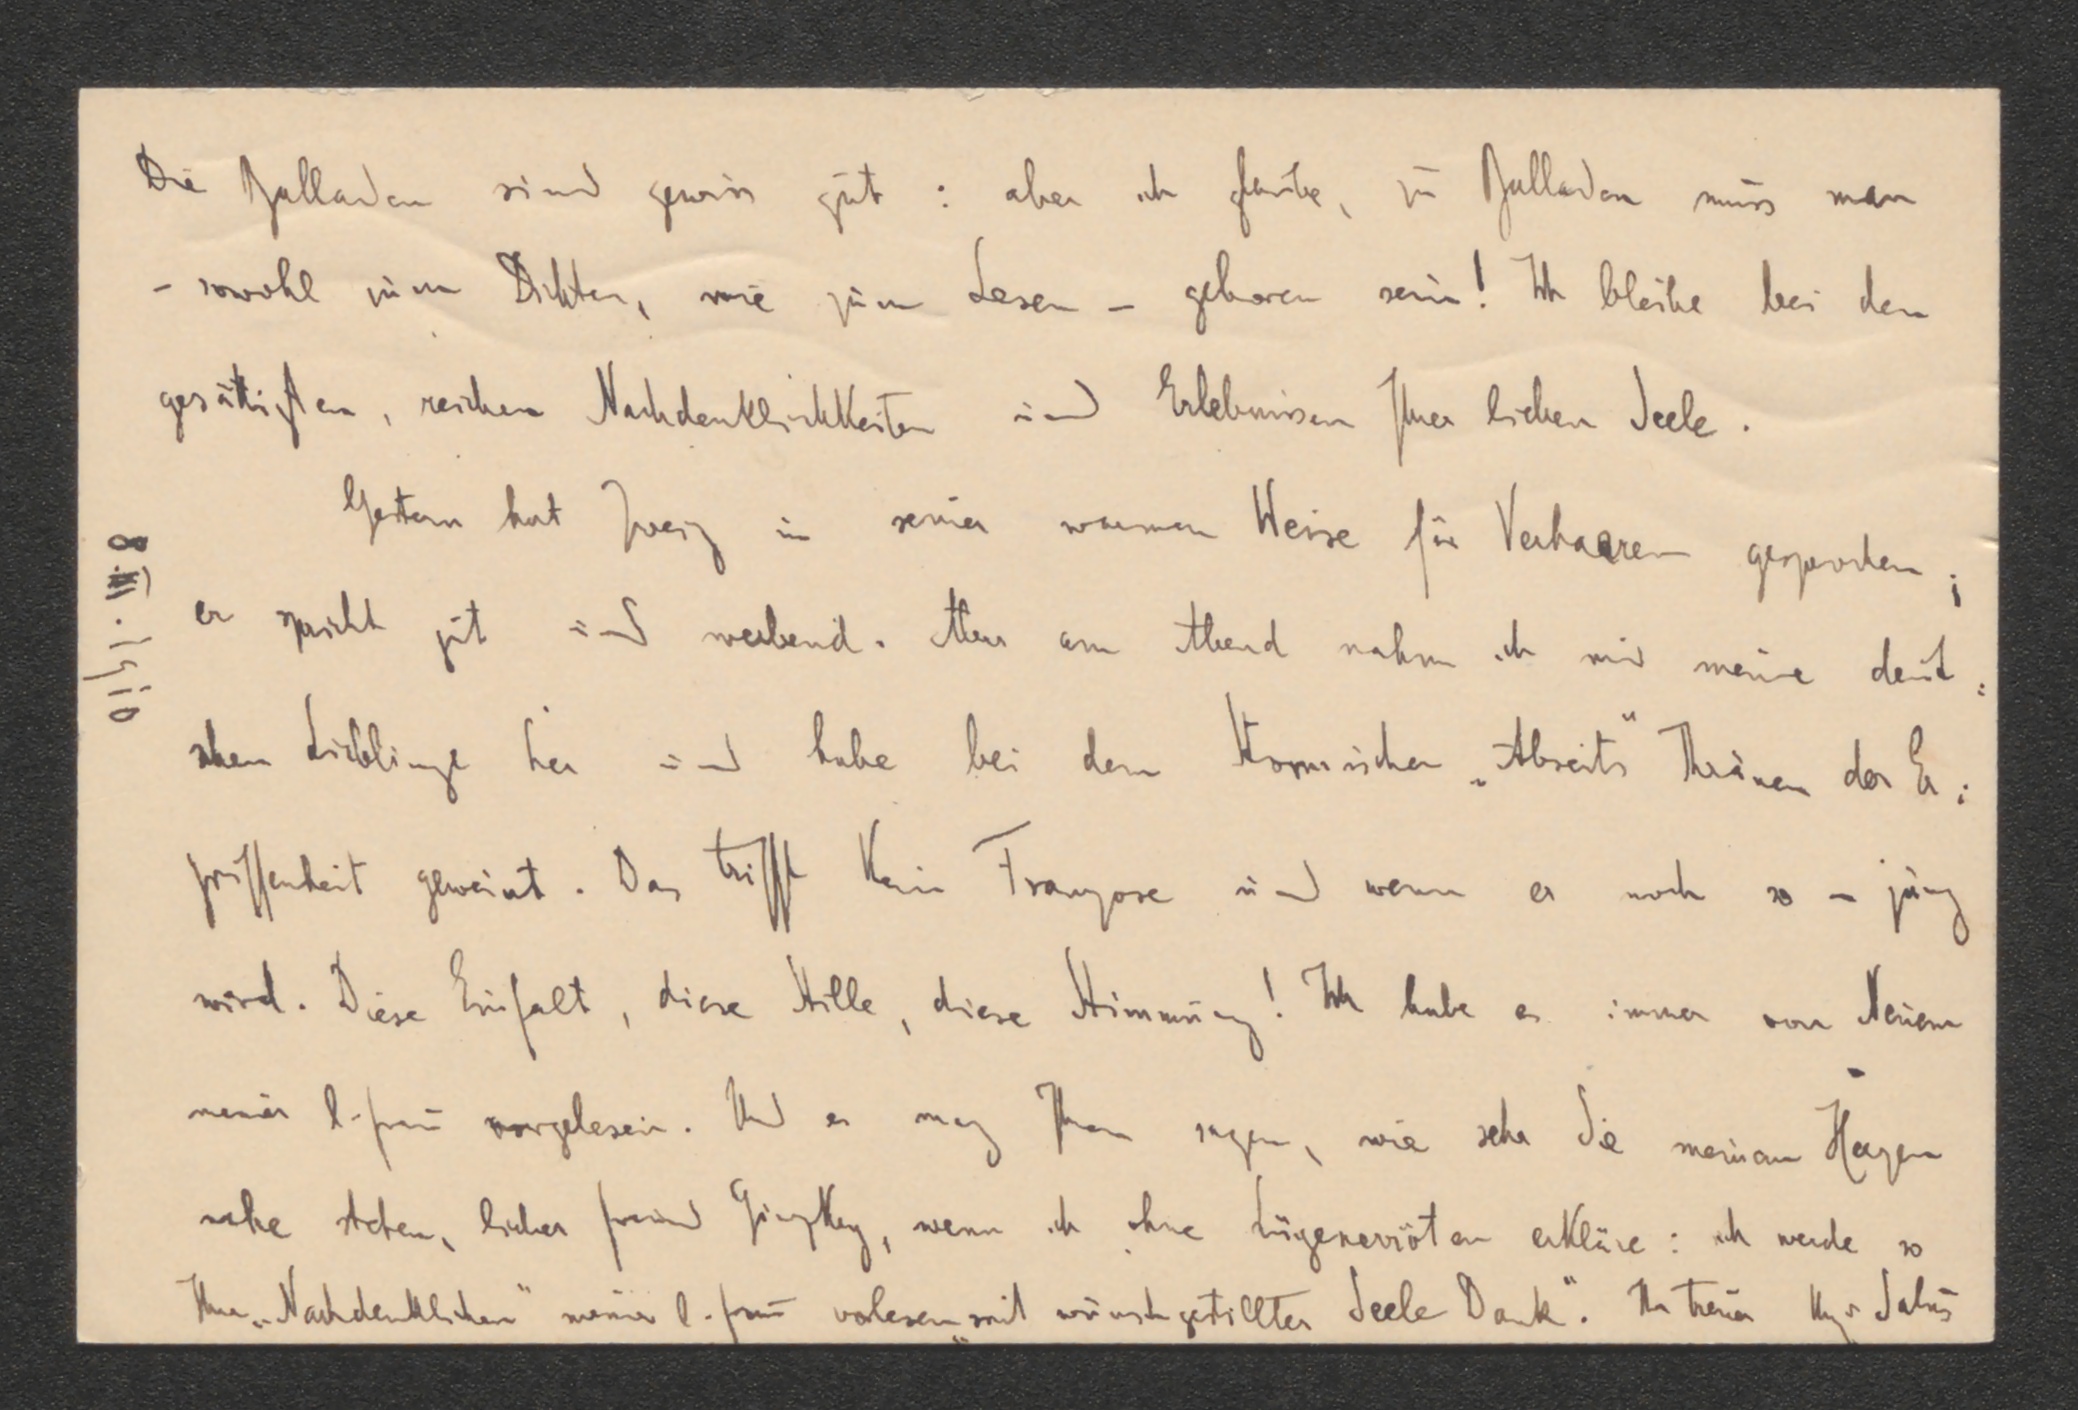 Die Balladen sind gewiss gut : aber ich glaube, zu Balladen muss man
- sowohl zum Dichten, wie zum Lesen - geboren sein! Ich bleibe bei den
gesättigten, reichen Nachdenklichkeiten und Erlebnissen Ihrer lieben Seele.
Gestern hat Zweig in seiner warmen Weise für Verhaeren gesprochen;
er spricht gut und werbend. Aber am Abend nahm ich mir meine deut:
schen Lieblinge her und habe bei dem Stormschen „Abseits" Thränen der Er:
griffenheit geweint. Das trifft kein Franzose und wenn er noch so - jung
wird. Diese Einfalt, diese Stille, diese Stimmung! Ich habe es immer von Neuem
meiner l. Frau vorgelesen. Und es mag Ihnen sagen, wie sehr Sie meinem Herzen
nahe stehen, lieber Freund Ginzkey, wenn ich ohne Lügenerröten erkläre: ich werde so
Ihre „Nachdenklichen" meiner l. Frau vorlesen „mit wunschgestillter Seele Dank". Ihr treuer Salus
8 III. 1910